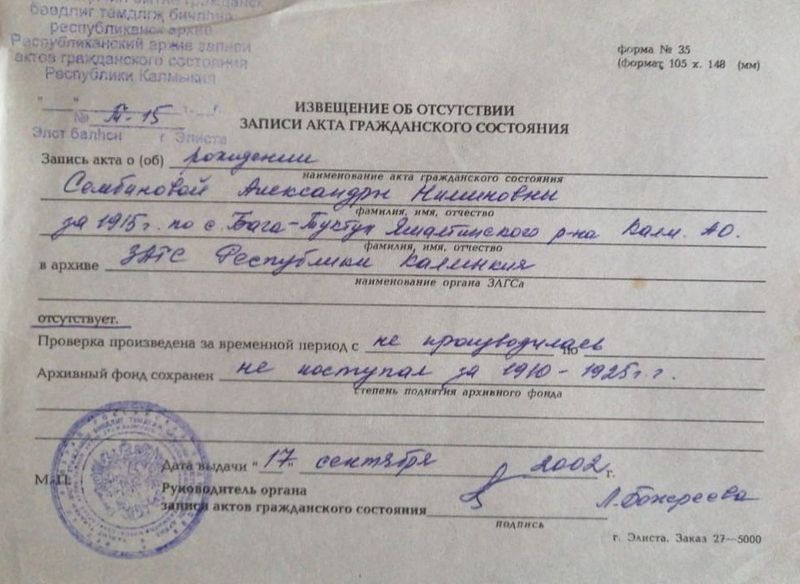 бөөдлиг темдглҗ бичлһнә
республиканск архив
Республиканский архив записи
актов гражданского состояния
Республики Калмыкия
форма № 35
(формат 105 х. 148 (мм)
"___"
г.
№ Т-15
Элст балһсн г Элиста
ИЗВЕЩЕНИЕ ОБ ОТСУТСТВИИ
ЗАПИСИ АКТА ГРАЖДАНСКОГО СОСТОЯНИЯ
Запись акта о (об) рождении
наименование акта гражданского состояния
Сембиновой Александры Ниминовны
фамилия, имя, отчество
за 1915г. по с. Бага-Тугтун Яшалтинского р-на Калм. АО.
фамилия, имя, отчество
в архиве ЗАГС Республики Калмыкия
наименование органа ЗАГСа
отсутствует.
Проверка произведена за временной период с не производилась по
Архивный фонд сохранен не поступал за 1910-1925г.г.
степень поднятия архивного фонда
Дата выдачи "17" сентября 2002 г.
М.П.
Руководитель органа
записи актов гражданского состояния Л.Бокереева
подпись
г. Элиста. Заказ 27—5000